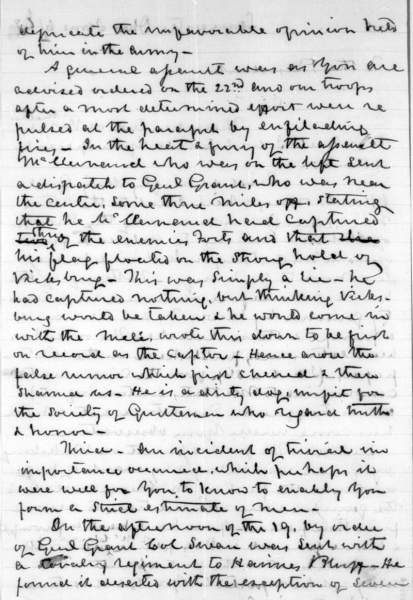 deprecate the unfavorable opinion held
of him in the army—
A general assault was as you are
advised ordered on the 22nd and our troops
after a most determined effort were re
pulsed at the parapet by enfilading
fires— In the heat & fury of the assault
McClernand who was on the left sent
a dispatch to Genl Grant, who was near
the centre, some three miles off, stating
that he McClernand had captured
three of the enemies forts and that
his flag floated on the strong hold of
Vicksburg— This was simply a lie— he
had captured nothing, but thinking Vicks-
burg would be taken & he would come in
with the , wrote this down to be first
on record as the captor & Hence arose the
false rumor which first cheered & then
shamed us— He is a dirty dog, unfit for
the society of Gentlemen who regard truth
& honor—
Third— An incident of trivial im
importance occurred, which perhaps it
were well for you to know to enable you
form a strict estimate of men—
On the afternoon of the 19, by order
of Genl Grant Col. Swan was sent with
a Cavalry regiment to Haines Bluff— He
found it deserted with the exception of seven